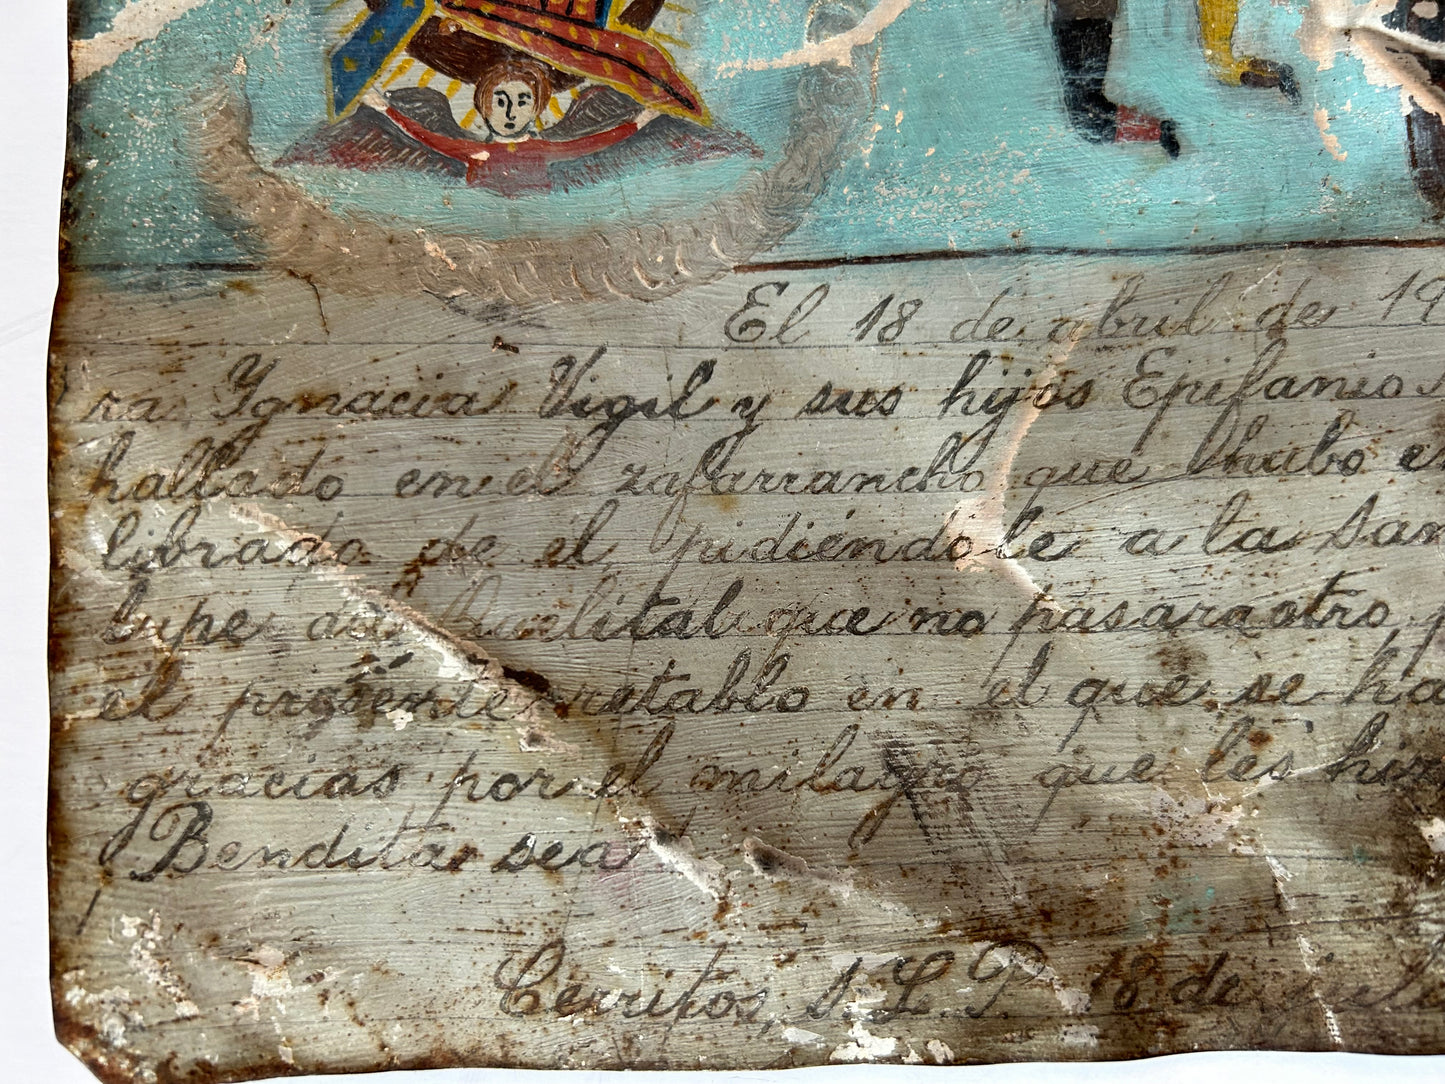 El 18 de abril de 19
ra Ygnacia Vigil y sus hijos Epifanio
hallado en el zafarrancho que hubo e
librado de el, pidiéndole a la San
lupe del Quelital que no pasara otro, p
el presente retablo en el que se ha
gracias por el milagro que les hiz
Bendita sea
Cerritos, S.L.P. 18 de juli